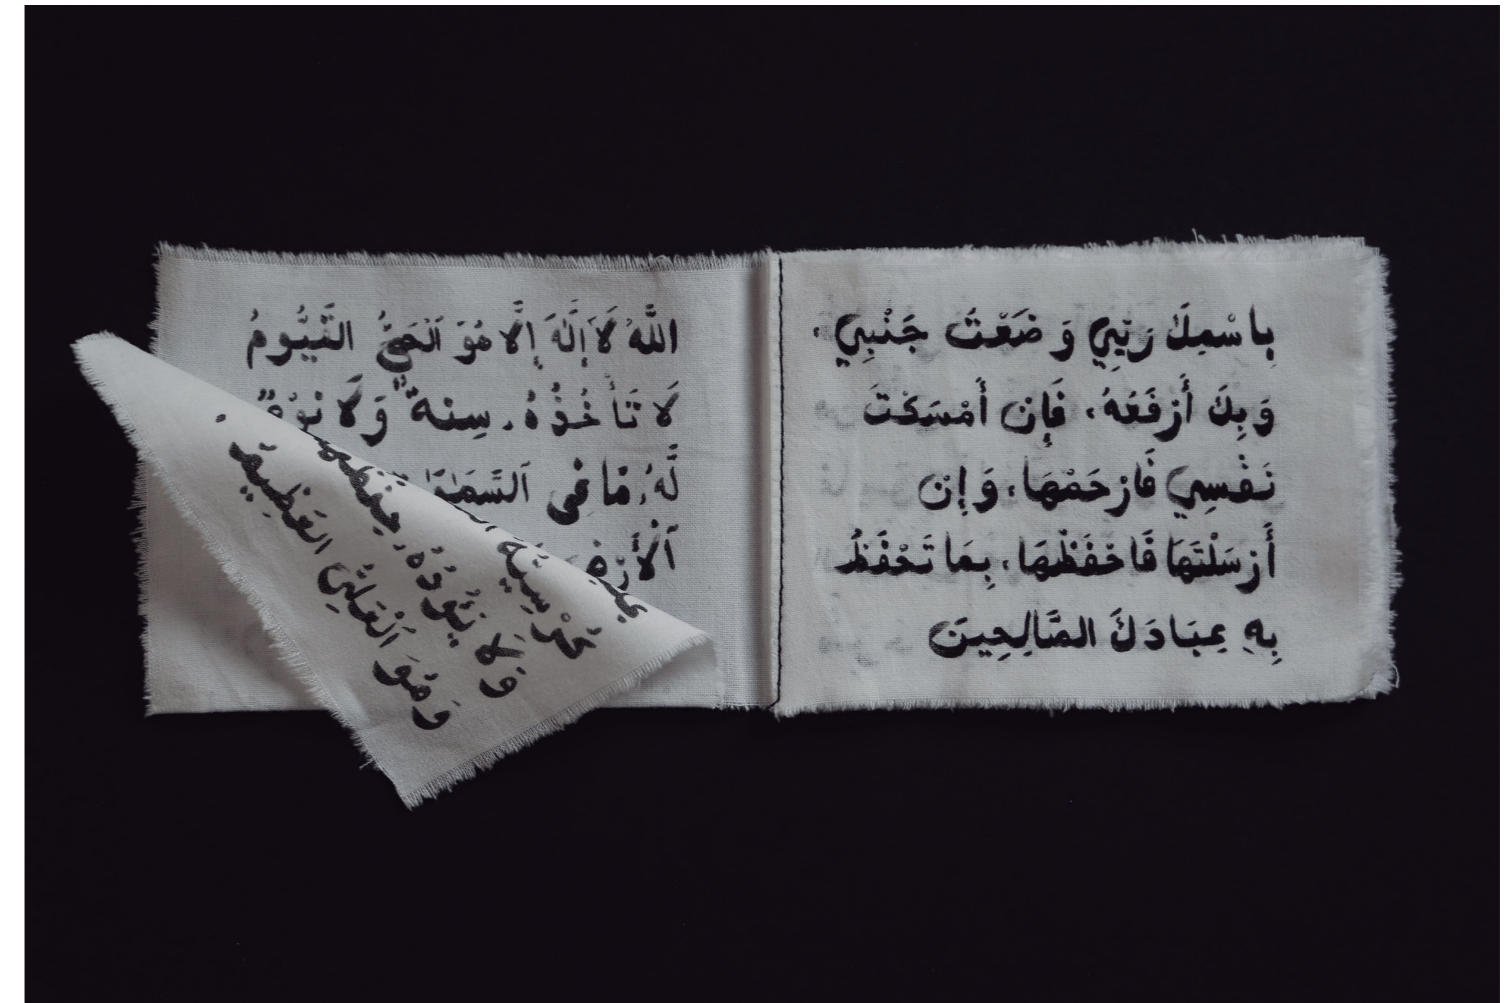 بِاسْمِكَ رَبِّي وَضَعْتُ جَنْبِي،
وَبِكَ أَرْفَعُهُ، فَإِن أَمْسَكْتَ
نَفْسِي فَارْحَمْهَا، وَإِن
أَرْسَلْتَهَا فَاحْفَظْهَا، بِمَا تَحْفَظُ
بِهِ عِبَادَكَ الصَّالِحِينَ
اللَّهُ لَا إِلَٰهَ إِلَّا هُوَ ٱلْحَيُّ القَيُّومُ
لَا تَأْخُذُهُ سِنَةٌ وَلَا نَوْمٌ
لَّهُ مَا فِي ٱلسَّمَٰوَٰ
ٱلْأَرْضِ
كُرْسِيُّهُ
وَلَا يَئُودُهُ حِفْظُهُمَا
وَهُوَ ٱلْعَلِيُّ العَظِيمُ.